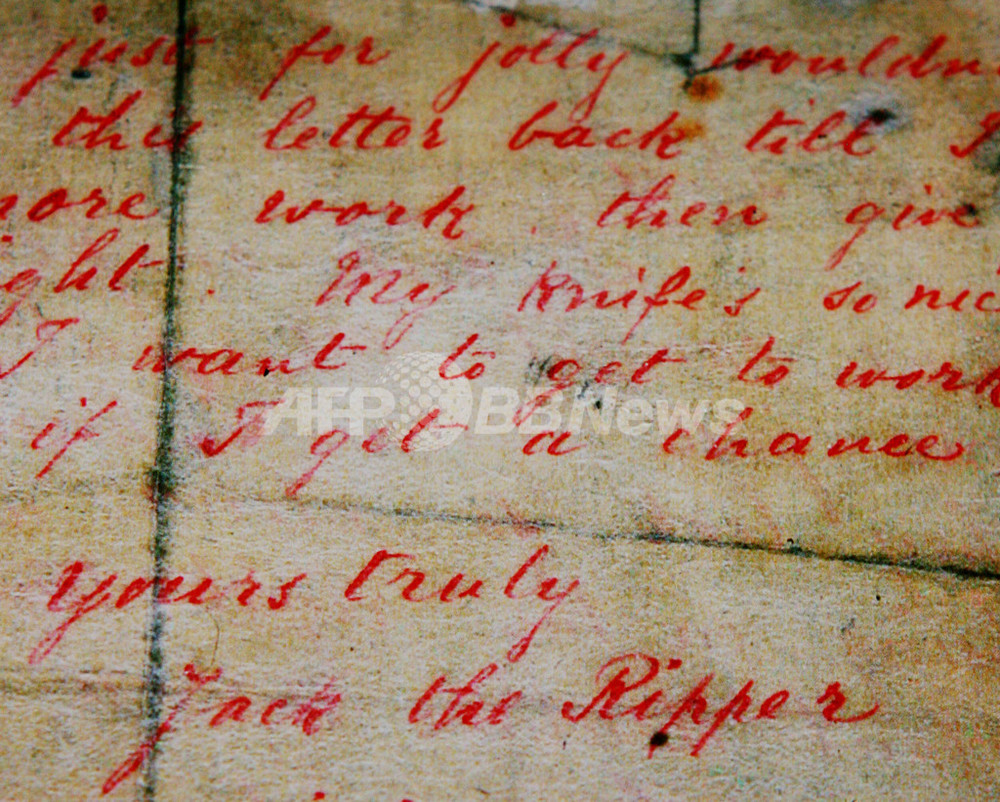 just for jolly wouldn
this letter back till I
more work. then give
ight. My knife's so nic
I want to get to work
if I get a chance
AFP BBNews
yours truly
Jack the Ripper